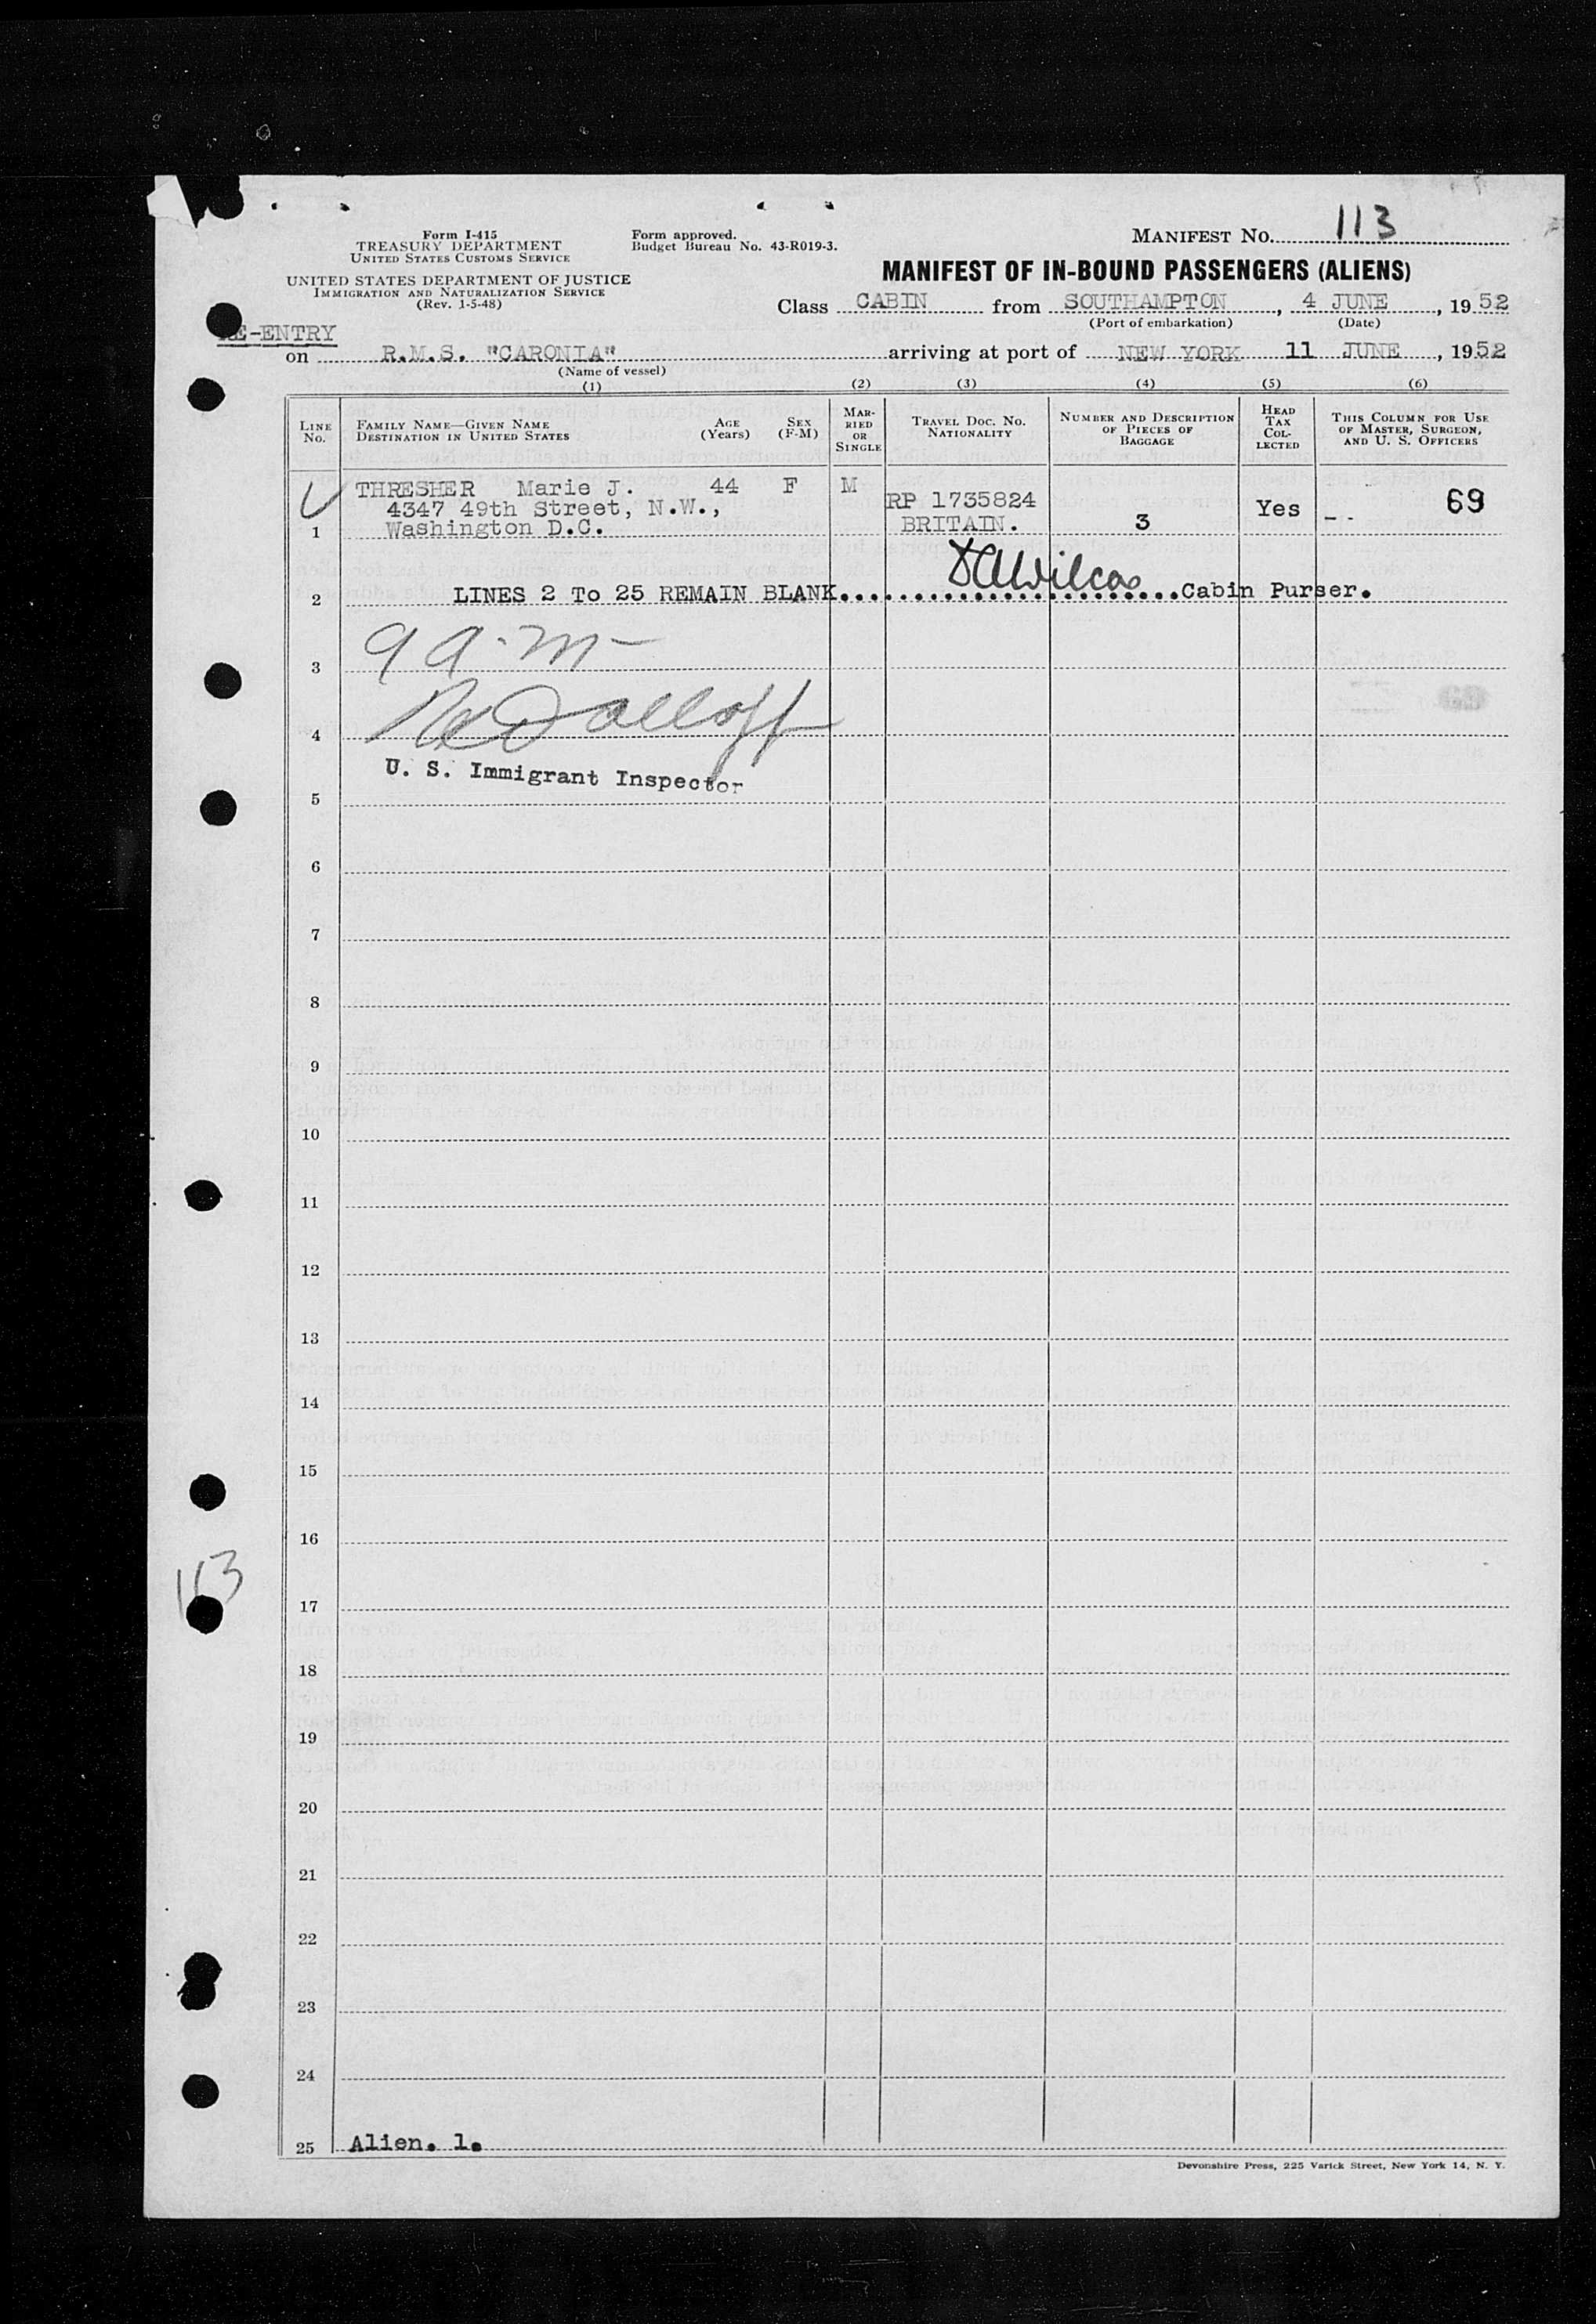 MANIFEST NO. 113
Form I-415
TREASURY DEPARTMENT
UNITED STATES CUSTOMS SERVICE
Form approved.
Budget Bureau No. 43-R019-3.
UNITED STATES DEPARTMENT OF JUSTICE
IMMIGRATION AND NATURALIZATION SERVICE
(Rev. 1-5-48)
MANIFEST OF IN-BOUND PASSENGERS (ALIENS)
Class CABIN from SOUTHAMPTON, 4 JUNE, 1952
(Port of embarkation) (Date)
RE-ENTRY
on R.M.S. "CARONIA" arriving at port of NEW YORK 11 JUNE, 1952
(Name of vessel)
(1) (2) (3) (4) (5) (6)
LINE NO.
FAMILY NAME—GIVEN NAME
DESTINATION IN UNITED STATES
AGE (Years)
SEX (F-M)
MARRIED OR SINGLE
TRAVEL DOC. NO.
NATIONALITY
NUMBER AND DESCRIPTION OF PIECES OF BAGGAGE
HEAD TAX COLLECTED
THIS COLUMN FOR USE OF MASTER, SURGEON, AND U. S. OFFICERS
THRESHER Marie J. 44 F M
4347 49th Street, N.W., RP 1735824 Yes -- 69
1 Washington D.C. BRITAIN. 3
2 LINES 2 To 25 REMAIN BLANK........................Cabin Purser.
3 9 a.m
4
U. S. Immigrant Inspector
5
6
7
8
9
10
11
12
13
14
15
16
113
17
18
19
20
21
22
23
24
25 Alien. 1.
Devonshire Press, 225 Varick Street, New York 14, N. Y.